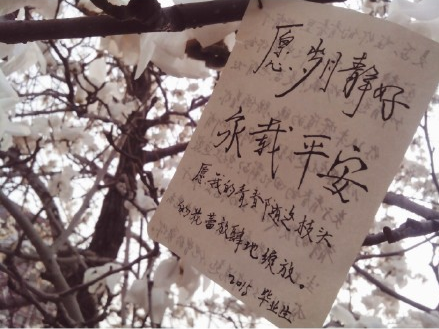 愿岁月静好
永载平安
愿我的青春随这枝头
的花蕾放肆地绽放。
2015 毕业生